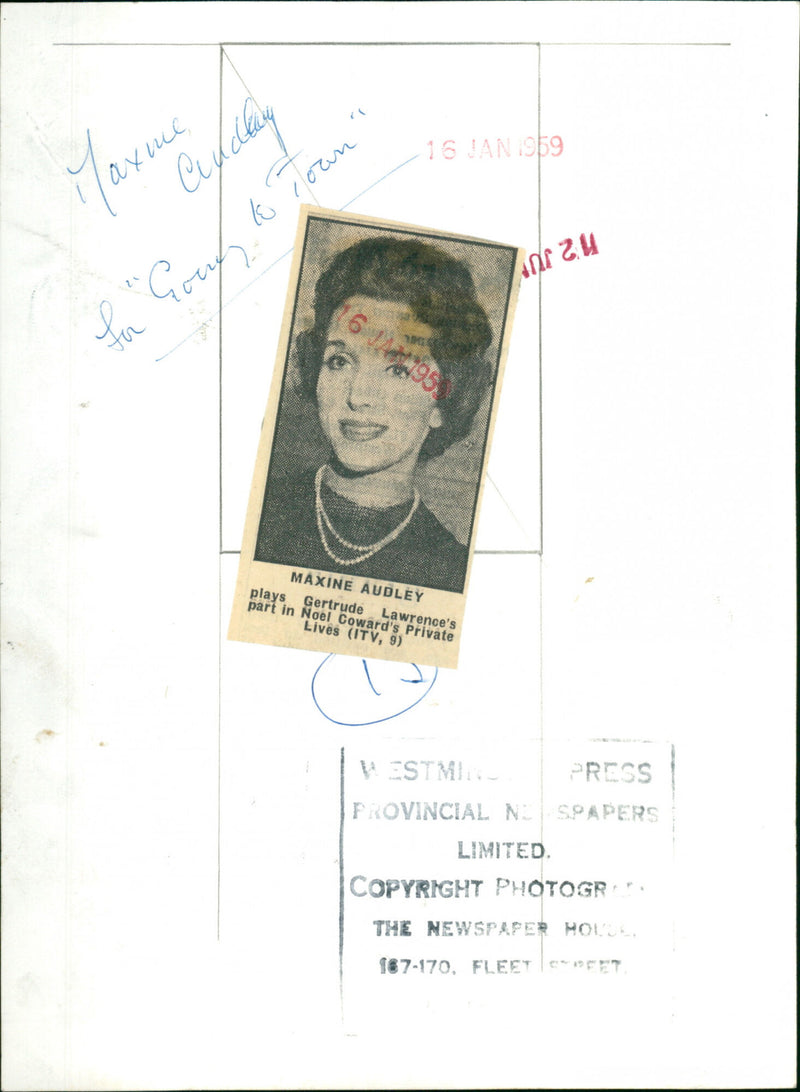 Maxine
Audley
for "Going to Town"
16 JAN 1959
12 JUN
16 JAN 1959
MAXINE AUDLEY
plays Gertrude Lawrence's
part in Noel Coward's Private
Lives (ITV, 9)
WESTMIN PRESS
PROVINCIAL NEWSPAPERS
LIMITED.
COPYRIGHT PHOTOGRA
THE NEWSPAPER HOUSE,
167-170, FLEET STREET.